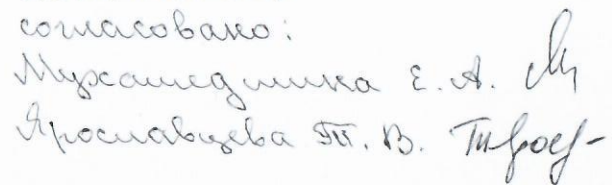 согласовано:
Мухамедшина Е. А.
Ярославцева Т. В.